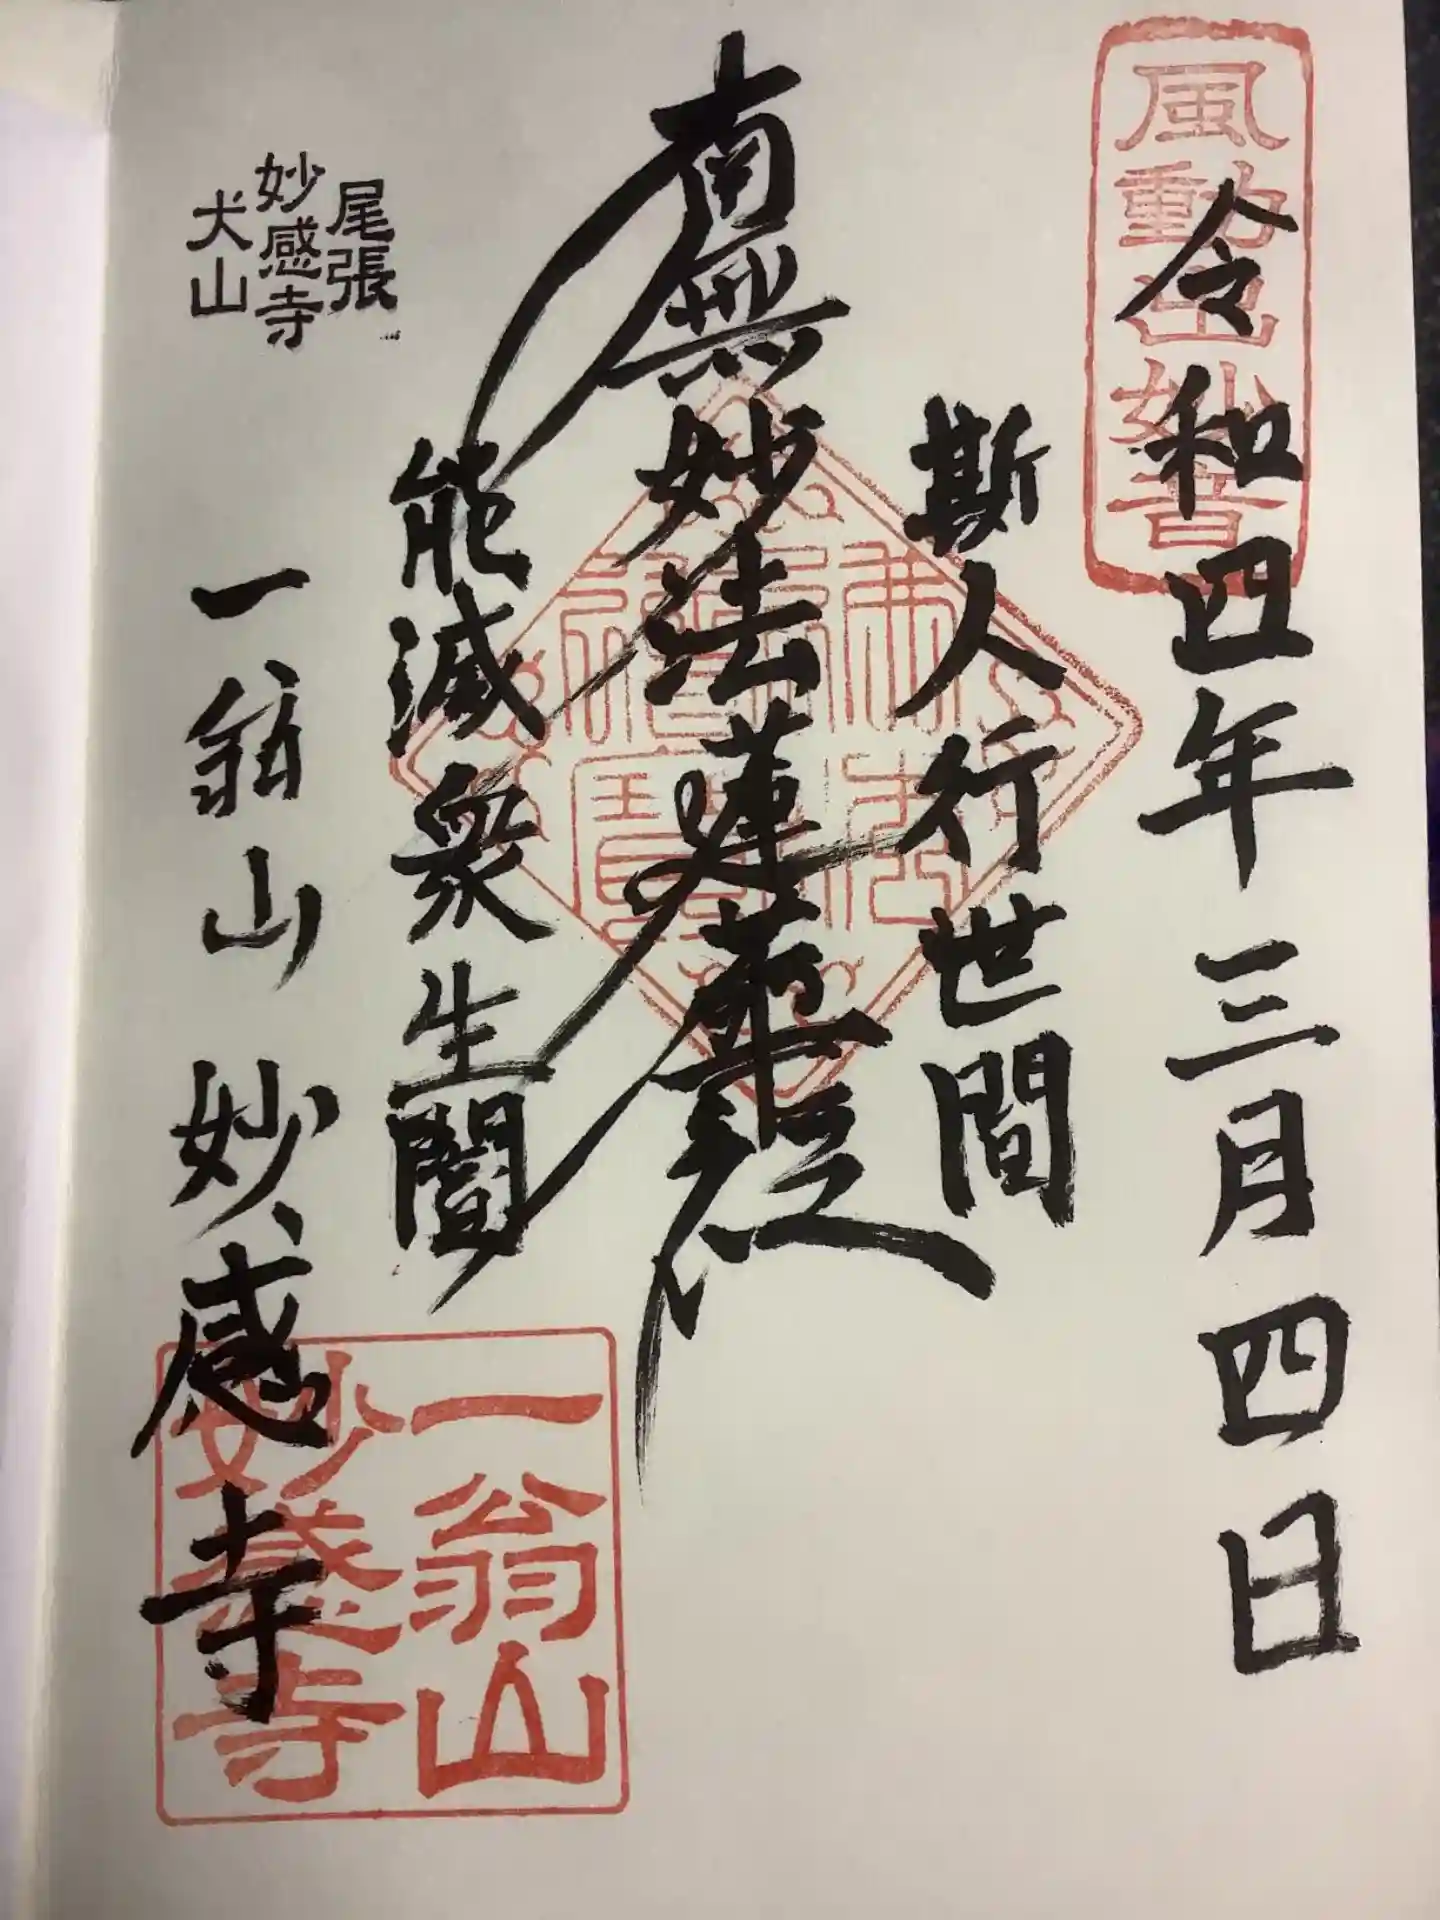 風動出妙音
令和四年三月四日
斯人行世間
南無妙法蓮華経
能滅衆生闇
尾張
妙感寺
犬山
一翁山 妙感寺
一翁山
妙感寺